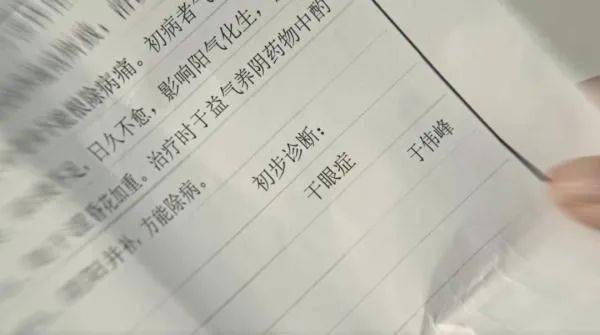 除病痛。初病者气
，日久不愈，影响阳气化生，
昏花加重。治疗时于益气养阴药物中酌
并补，方能除病。
初步诊断：
干眼症
于伟峰